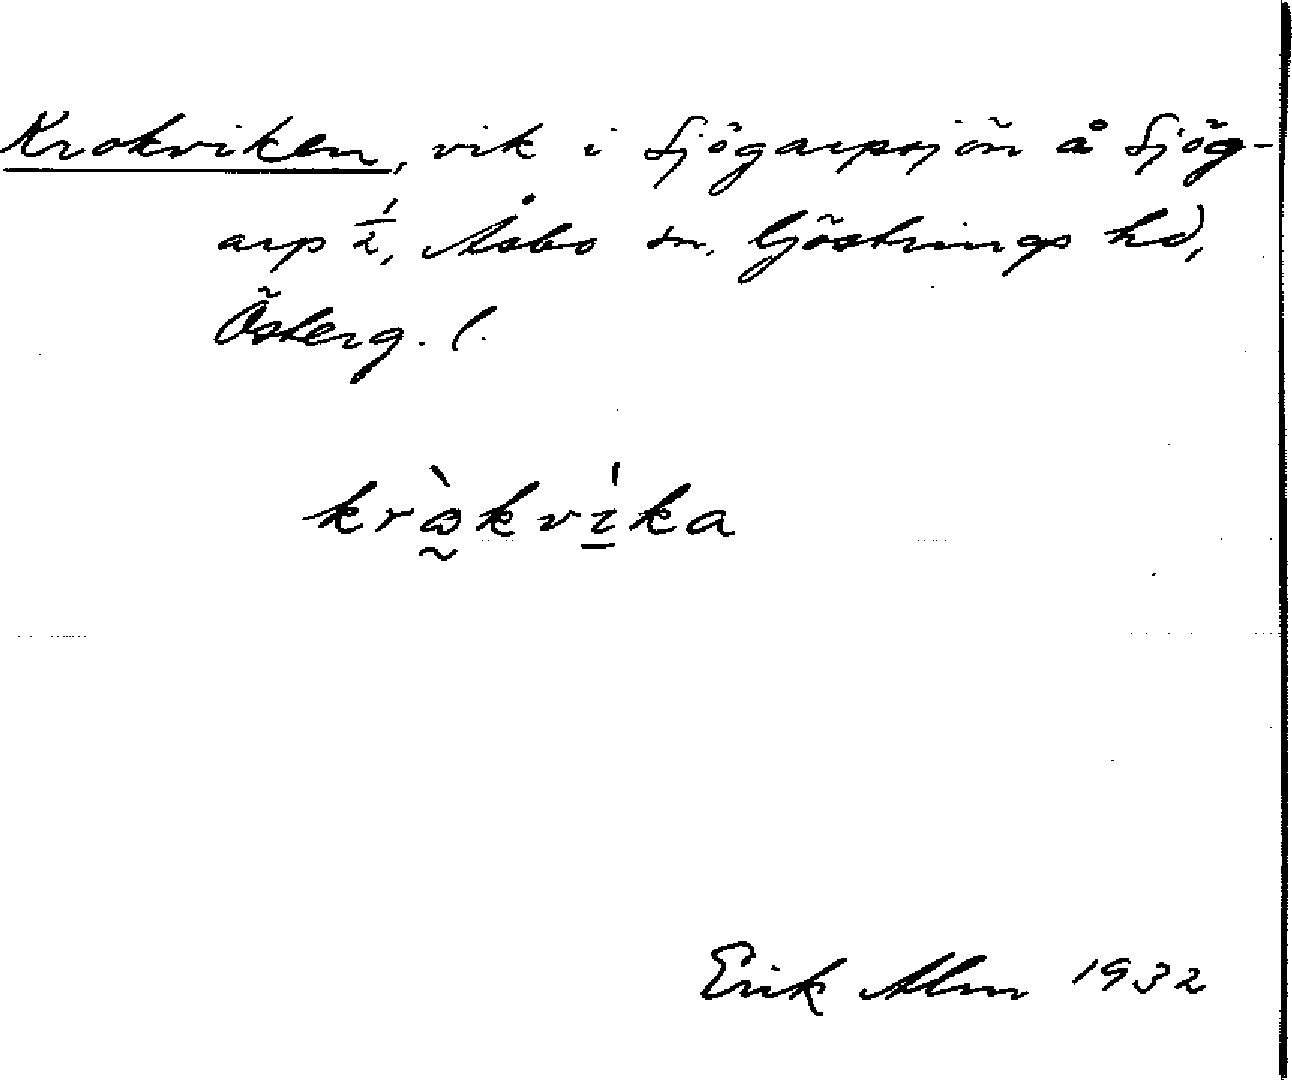 Krokviken, vik i Sjögarpsjön å Sjög-
arp 1/2, Åsbo sn, Göstrings hd,
Österg. l.
kròkvíka
Erik Alm 1932